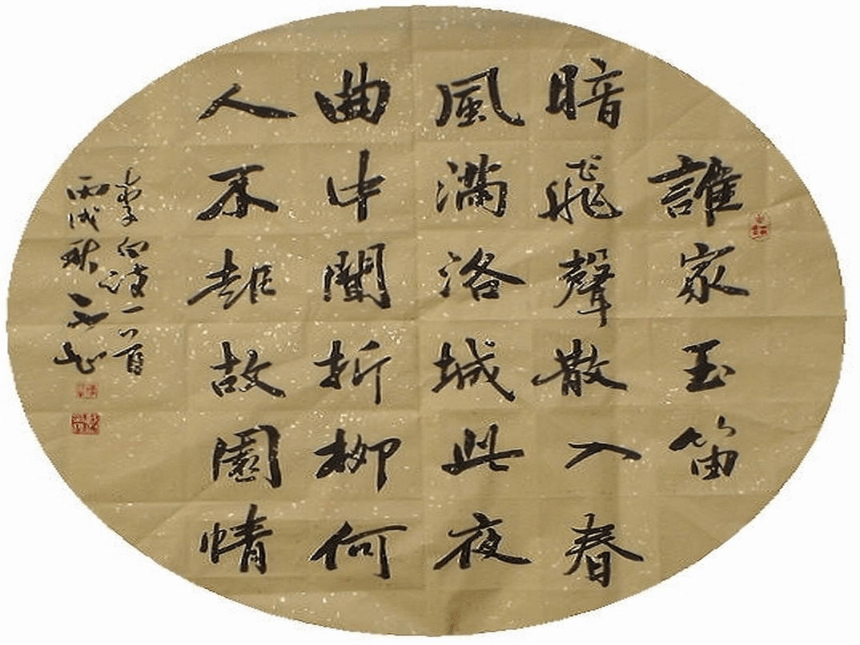 誰家玉笛
暗飛聲散入春
風滿洛城此夜
曲中聞折柳何
人不起故園情
李白詩一首
丙戌秋